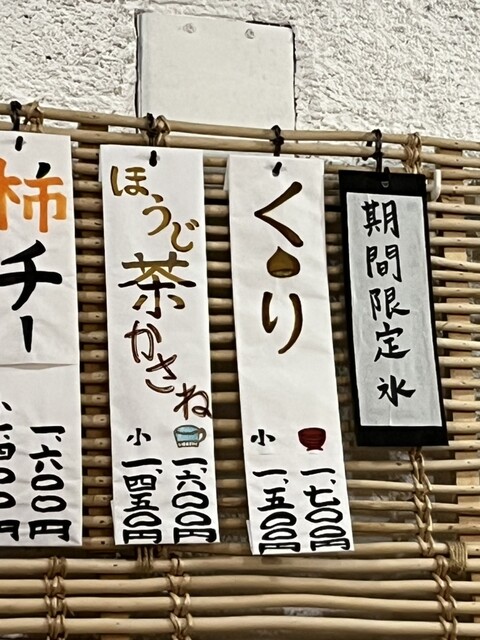 期間限定氷
くり
一、七〇〇円
小
一、五〇〇円
ほうじ
茶
かさね
一、六〇〇円
小
一、四五〇円
柿
チー
一、六〇〇円